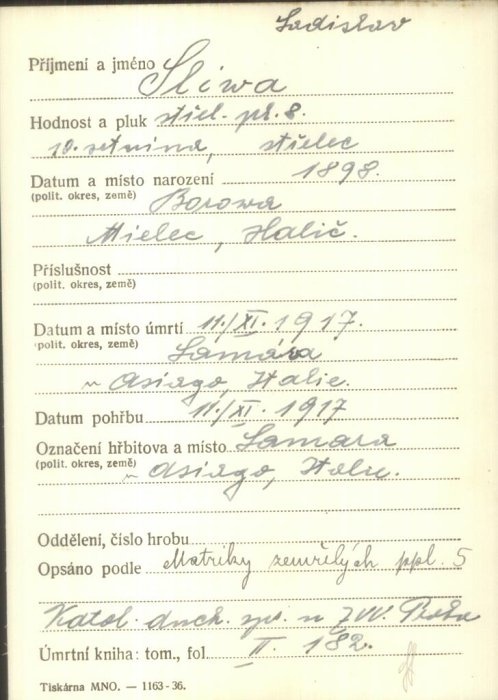 Ladislav
Příjmení a jméno Sliwa
Hodnost a pluk střel. pl. 8.
10. setnina, střelec
Datum a místo narození 1898.
(polit. okres, země) Borowa
Mielec, Halič.
Příslušnost
(polit. okres, země)
Datum a místo úmrtí 11./XI. 1917.
(polit. okres, země) Lamara
u Asiago, Italie.
Datum pohřbu 11./XI. 1917
Označení hřbitova a místo Lamara
(polit. okres, země) u Asiago, Italie.
Oddělení, číslo hrobu
Opsáno podle Matriky zemřelých ppl. 5
Katol. duch. spr. u ZVV. Praha
Úmrtní kniha: tom., fol. II. 182.
Tiskárna MNO. — 1163-36.